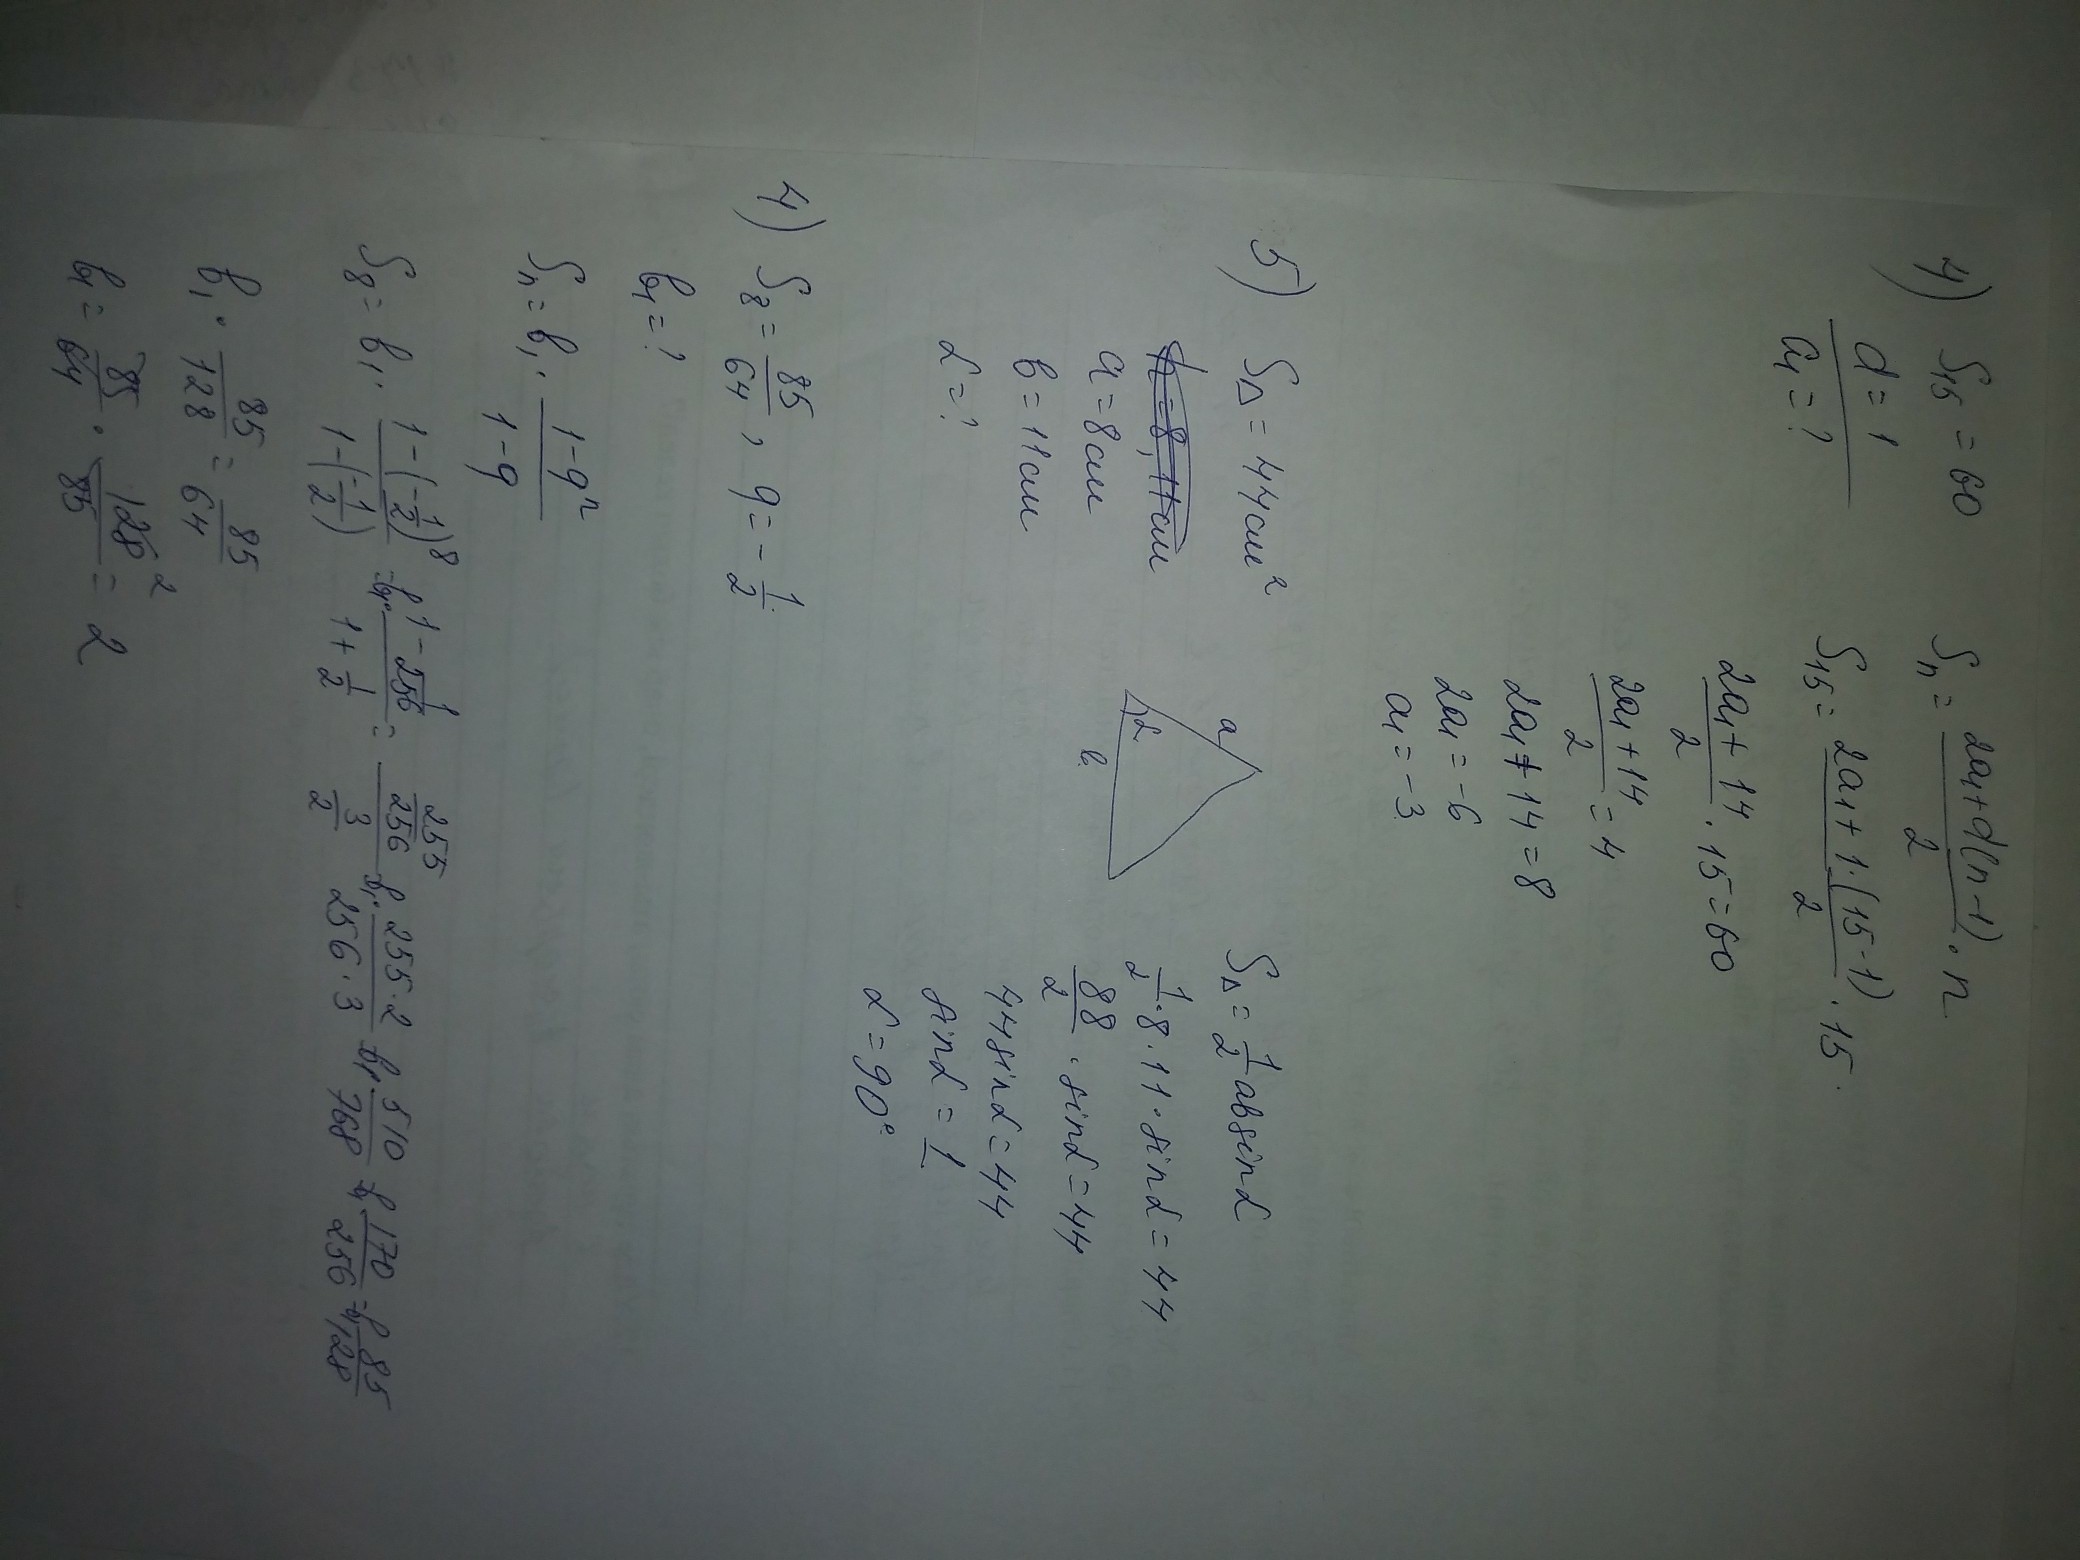 4) S₁₅ = 60
d = 1
a₁ = ?
Sₙ = (2a₁ + d(n-1))/2 · n
S₁₅ = (2a₁ + 1·(15-1))/2 · 15
(2a₁ + 14)/2 · 15 = 60
(2a₁ + 14)/2 = 4
2a₁ + 14 = 8
2a₁ = -6
a₁ = -3
5) S△ = 44 см²
a = 8 см
b = 11 см
α = ?
a
α
b
S△ = 1/2 ab sin α
1/2 · 8 · 11 · sin α = 44
88/2 · sin α = 44
44 sin α = 44
sin α = 1
α = 90°
4) S₈ = 85/64, q = -1/2
b₁ = ?
Sₙ = b₁ · (1-qⁿ)/(1-q)
S₈ = b₁ · (1-(-1/2)⁸)/(1-(-1/2)) = b₁ · (1 - 1/256)/(1 + 1/2) = (255/256)/(3/2) b₁ · (255·2)/(256·3) b₁ · 510/768 b₁ 170/256 = b₁ 85/128
b₁ · 85/128 = 85/64
b₁ = 85/64 · 128/85 ² = 2